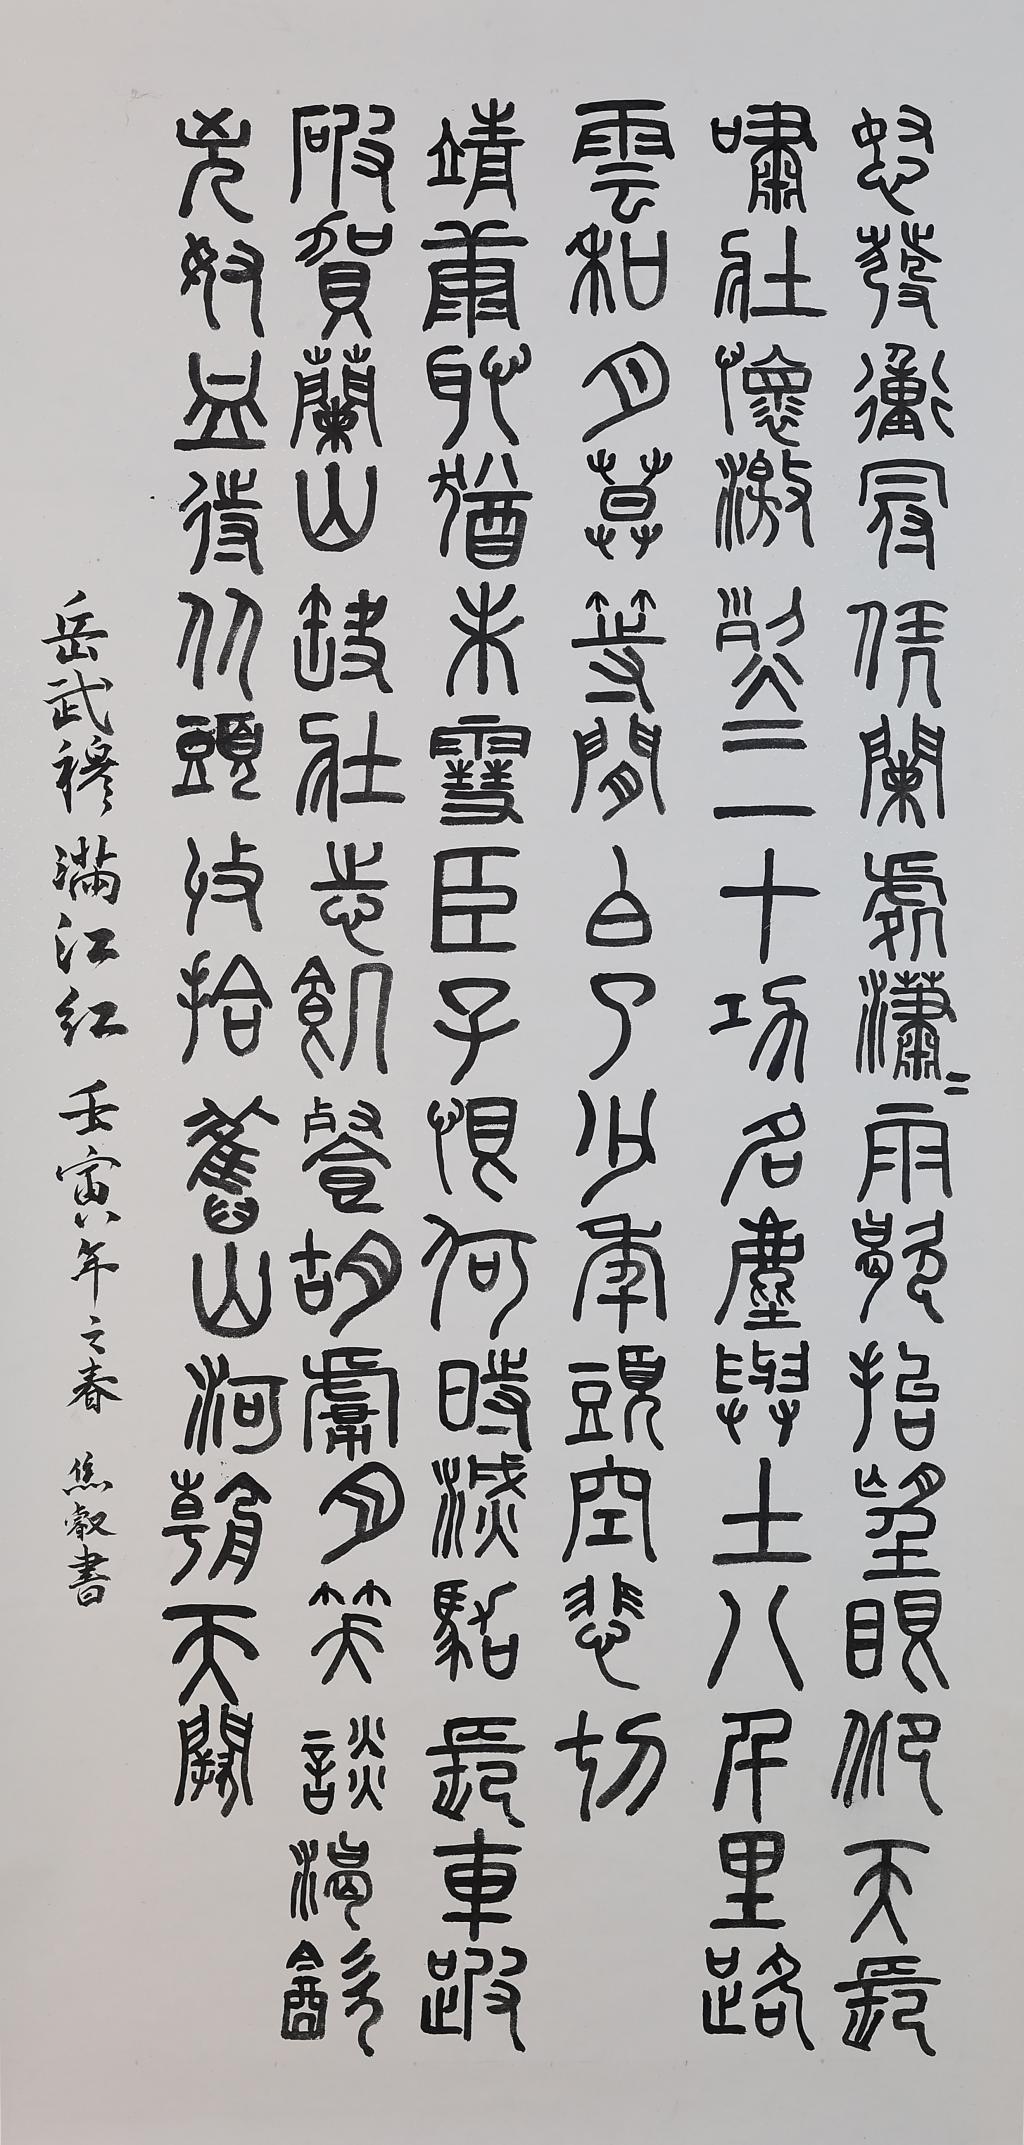 怒髮衝冠憑闌處瀟〻雨歇抬望眼仰天長
嘯壯懷激烈三十功名塵與土八千里路
雲和月莫等閒白了少年頭空悲切
靖康恥猶未雪臣子恨何時滅駕長車踏
破賀蘭山缺壯志飢餐胡虜肉笑談渴飲
匈奴血待從頭收拾舊山河朝天闕
岳武穆滿江紅 壬寅年之春 焦叡書